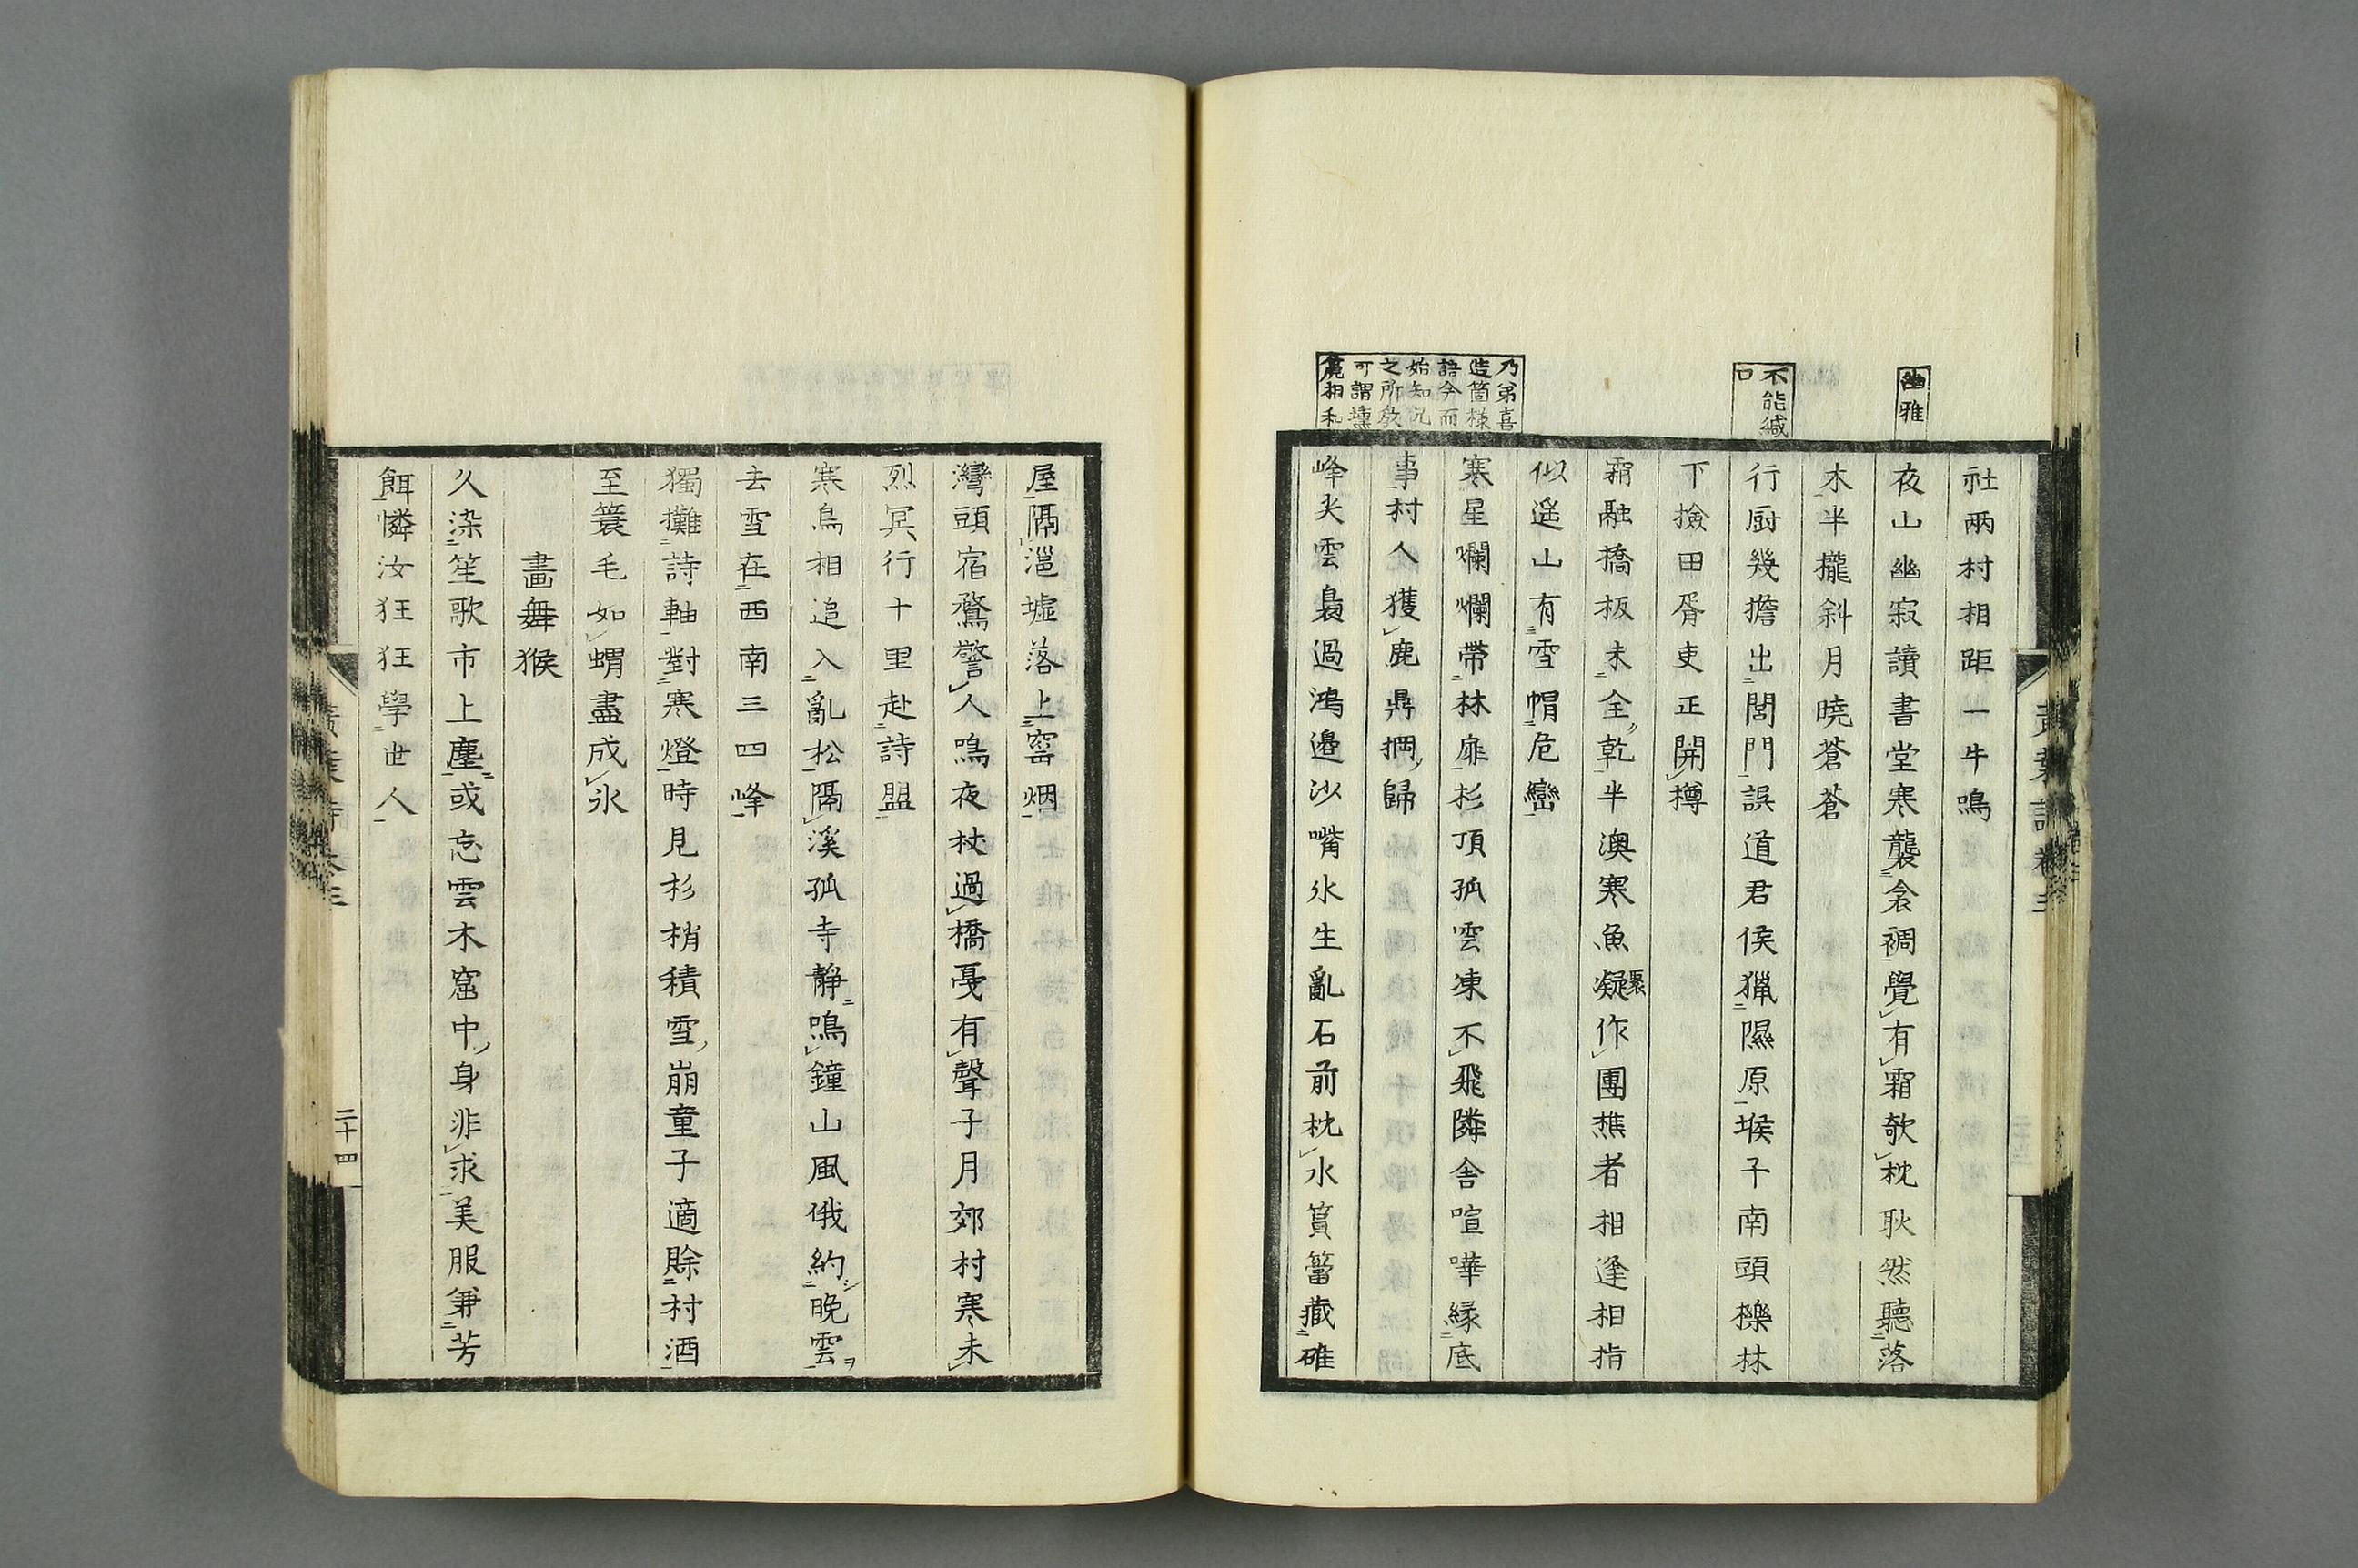 社兩村相距一牛鳴
夜山幽寂讀書堂寒襲衾裯覺有霜欹枕耿然聽落
木半攏斜月曉蒼蒼
行厨幾擔出閭門誤道君侯獵隰原堠子南頭櫟林
下撿田胥吏正開樽
霜融橋板未全乾半澳寒魚凝聚作團樵者相逢相指
似遥山有雪帽危巒
寒星爛爛帶林扉杉頂孤雲凍不飛隣舍喧嘩縁底
事村人獲鹿鼎摑歸
峰尖雲裊過鴻邊沙嘴氷生亂石前枕水篔簹藏碓
幽雅
不能緘
口
乃弟喜
造箇様
語今而
始知兄
之所教
可謂壎
篪相和
屋隔邋墟落上窰烟
灣頭宿鶩警人鳴夜杖過橋戞有聲子月郊村寒未
烈冥行十里赴詩盟
寒鳥相追入亂松隔溪孤寺靜鳴鐘山風俄約晩雲
去雪在西南三四峰
獨攤詩軸對寒燈時見杉梢積雪崩童子適賖村酒
至簑毛如蝟盡成氷
畵舞猴
久染笙歌市上塵或忘雲木窟中身非求美服兼芳
餌憐汝狂狂學世人
二十四